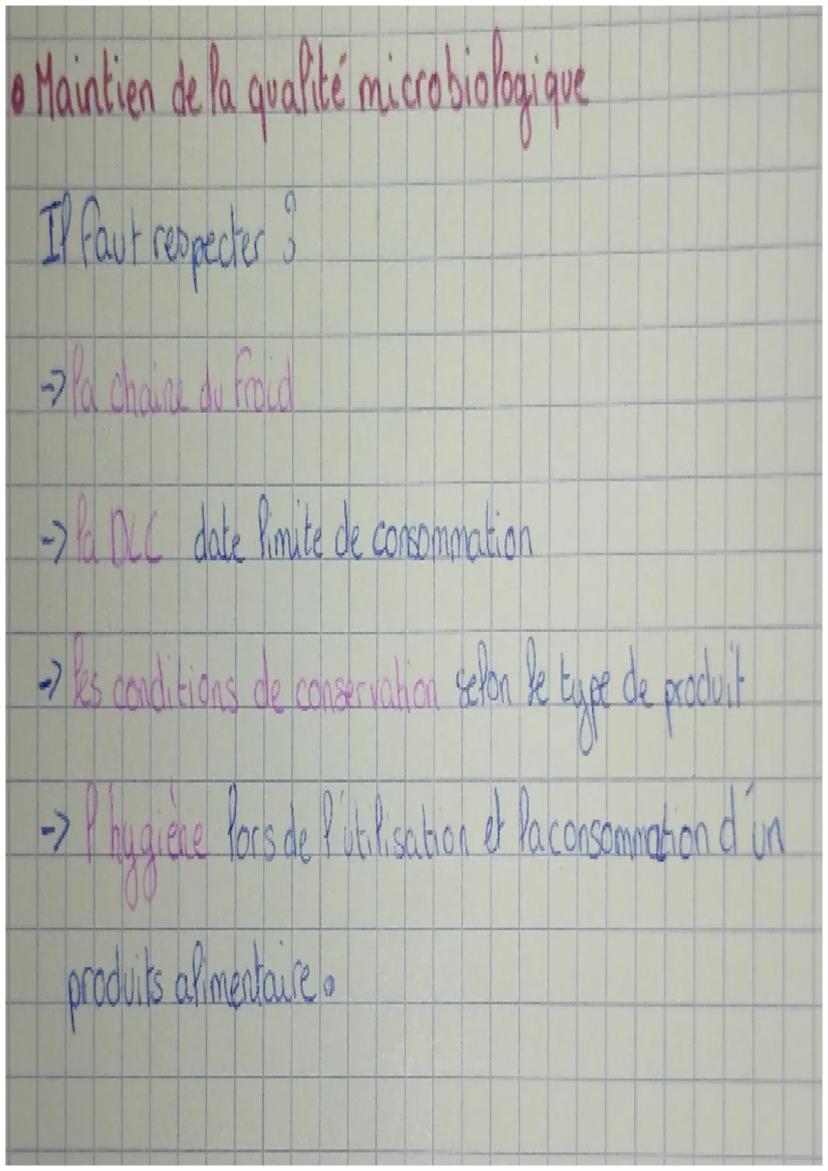 • Maintien de la qualité microbiologique
Il faut respecter :
-> la chaine du froid
-> la DLC date limite de consommation
-> les conditions de conservation selon le type de produit
-> l'hygiène lors de l'utilisation et la consommation d'un
produits alimentaire.